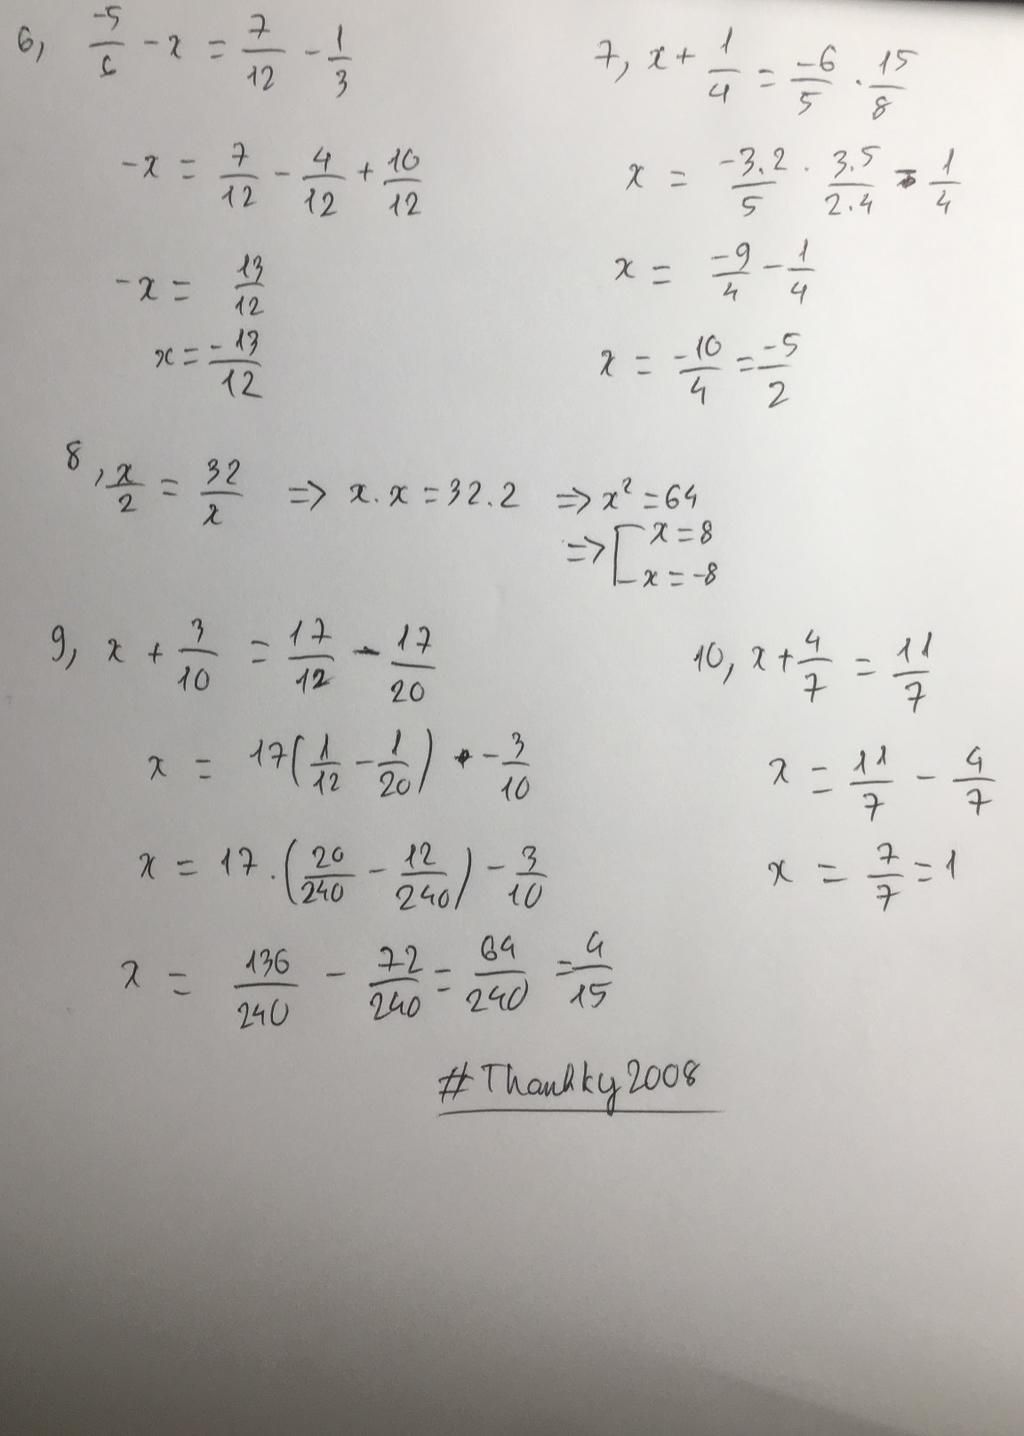 6, -5/6 - x = 7/12 - 1/3
-x = 7/12 - 4/12 + 10/12
-x = 13/12
x = -13/12
7, x + 1/4 = -6/5 . 15/8
x = -3.2/5 . 3.5/2.4 - 1/4
x = -9/4 - 1/4
x = -10/4 = -5/2
8, x/2 = 32/x => x.x = 32.2 => x² = 64
=> [ x = 8
x = -8
9, x + 3/10 = 17/12 - 17/20
x = 17(1/12 - 1/20) - 3/10
x = 17.(20/240 - 12/240) - 3/10
x = 136/240 - 72/240 = 64/240 = 4/15
10, x + 4/7 = 11/7
x = 11/7 - 4/7
x = 7/7 = 1
#Thanhky2008